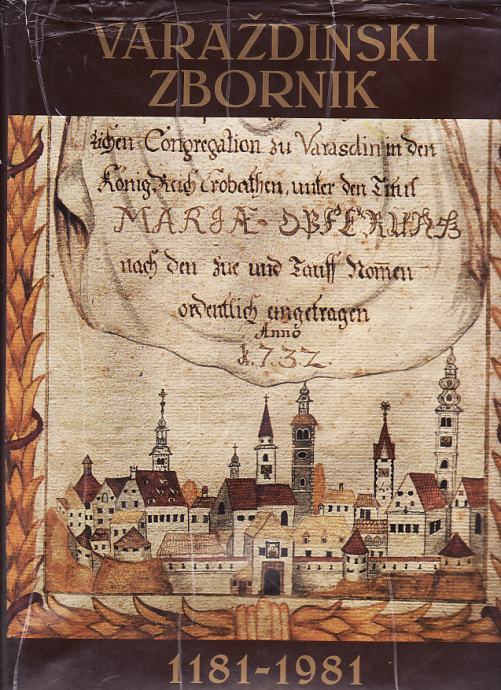 VARAŽDINSKI
ZBORNIK
lichen Congregation zu Varasdin in den
König Reich Crobathen, unter den Titul
MARIÆ OPFERUNG
nach den Zue und Tauff Nom̄en
ordentlich eingetragen
Anno
1.7.3.2
1181-1981